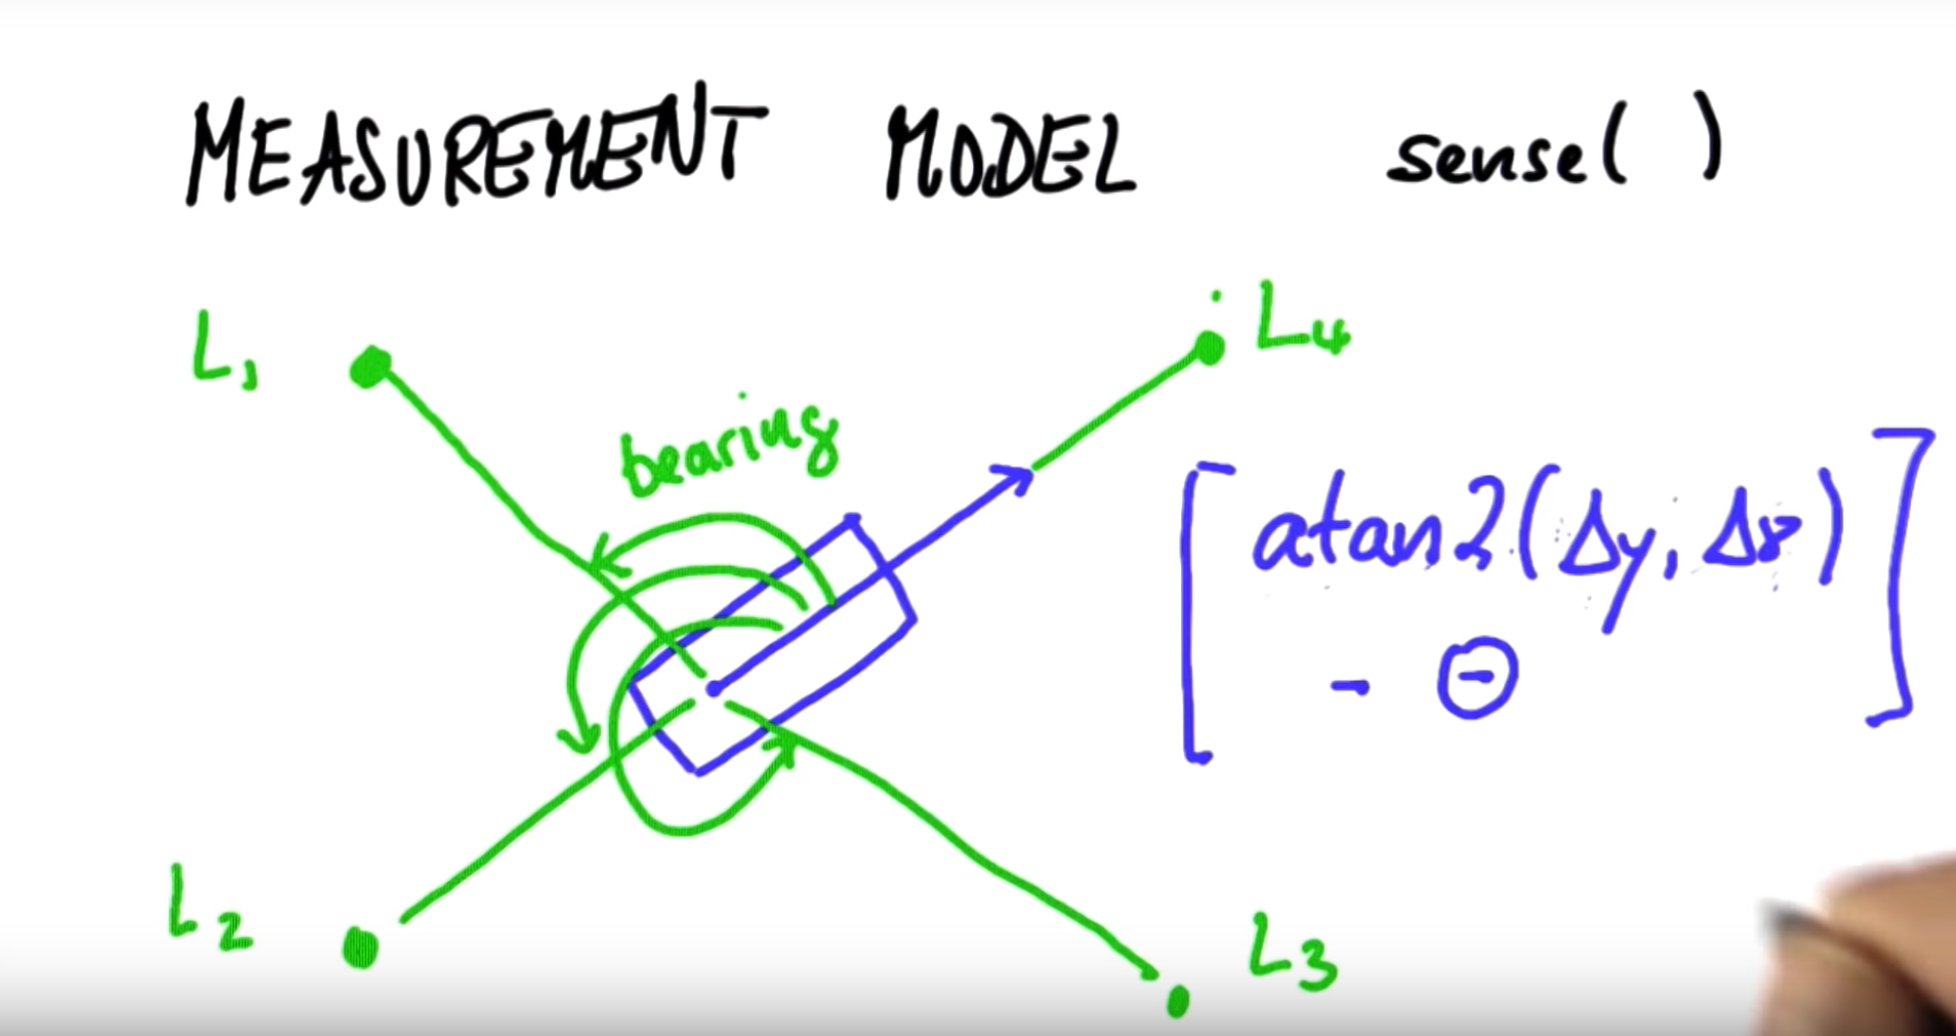 MEASUREMENT MODEL sense( )
L1
L4
bearing
[atan2(Δy, Δx)
- Θ]
L2
L3